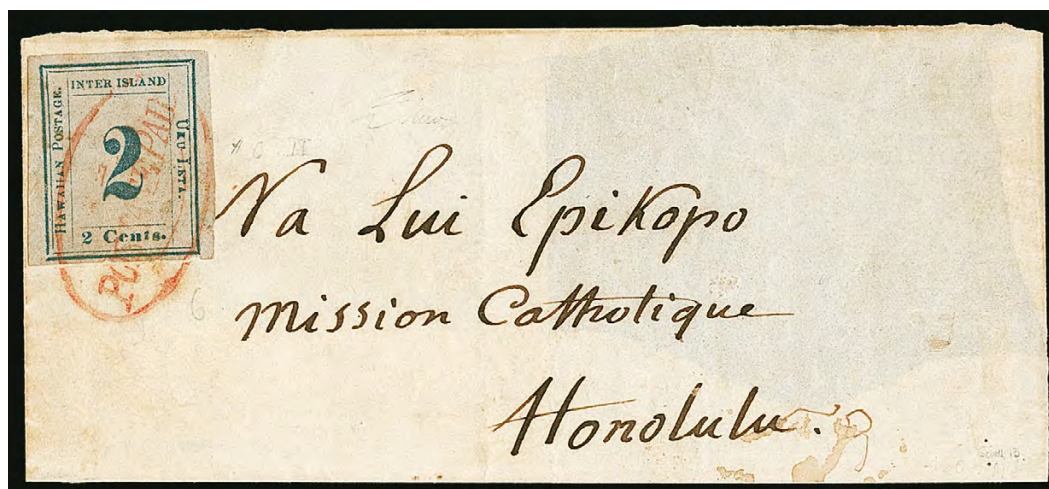 INTER ISLAND
HAWAIIAN POSTAGE.
2
UKU LETA.
2 Cents.
Na Lui Epikopo
Mission Catholique
Honolulu.